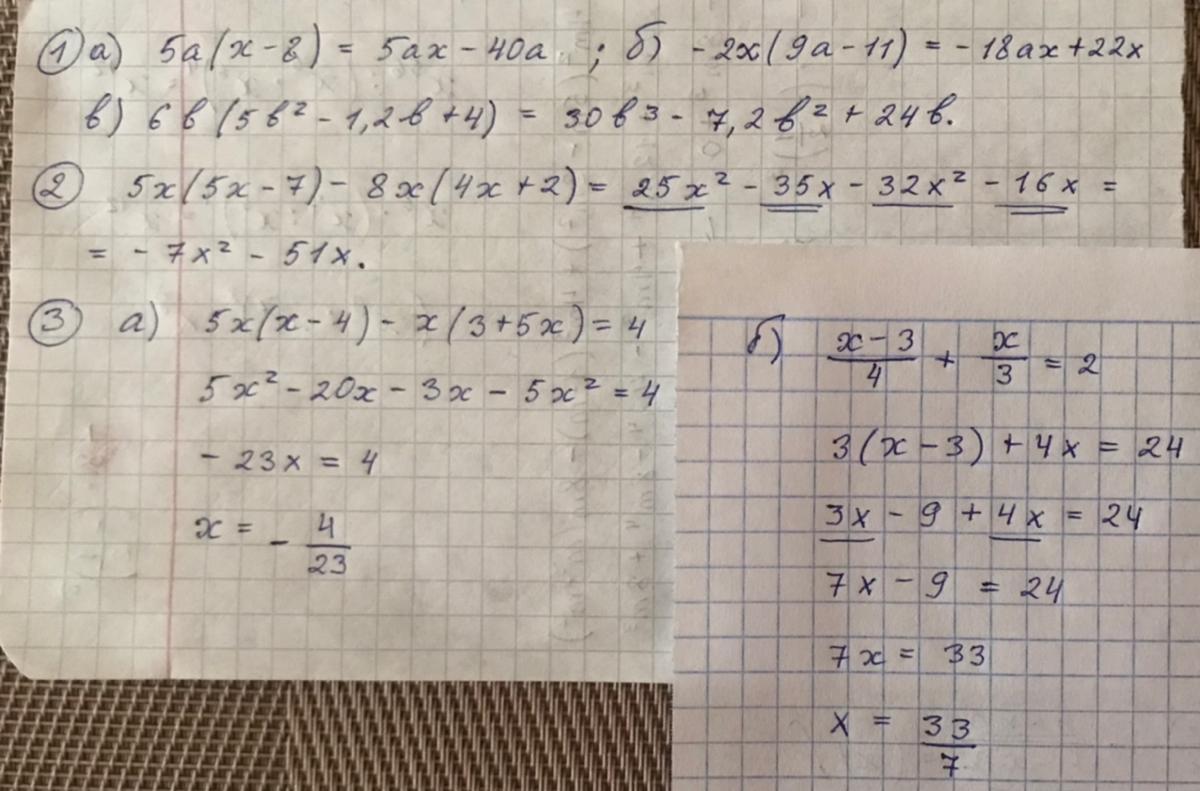 ① а) 5a(x-8) = 5ax - 40a ; б) -2x(9a-11) = -18ax+22x
в) 6в(5в² - 1,2в+4) = 30в³ - 7,2в² + 24в.
② 5x(5x-7) - 8x(4x+2) = 25x² - 35x - 32x² - 16x =
= - 7x² - 51x.
③ а) 5x(x-4) - x(3+5x) = 4
5x² - 20x - 3x - 5x² = 4
- 23x = 4
x = - 4/23
б) (x-3)/4 + x/3 = 2
3(x-3) + 4x = 24
3x - 9 + 4x = 24
7x - 9 = 24
7x = 33
x = 33/7